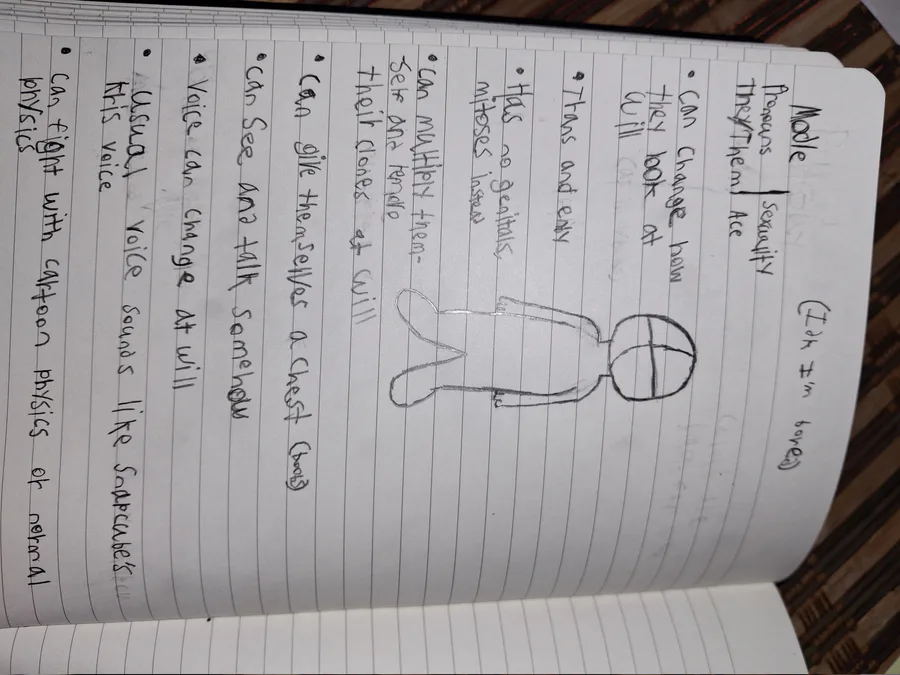 Modle (Idk I'm bored)
Pronouns | Sexuality
They/Them | Ace
• Can change how
they look at
Will
• Thans and enby
• Has no genitals,
mitoses instead
• Can multiply them-
selfs and
their clones at will
• Can give themselves a chest (boobs)
• Can see and talk somehow
• Voice can change at will
• Usual voice sounds like Snapcube's
this voice
• Can fight with cartoon physics or normal
physics